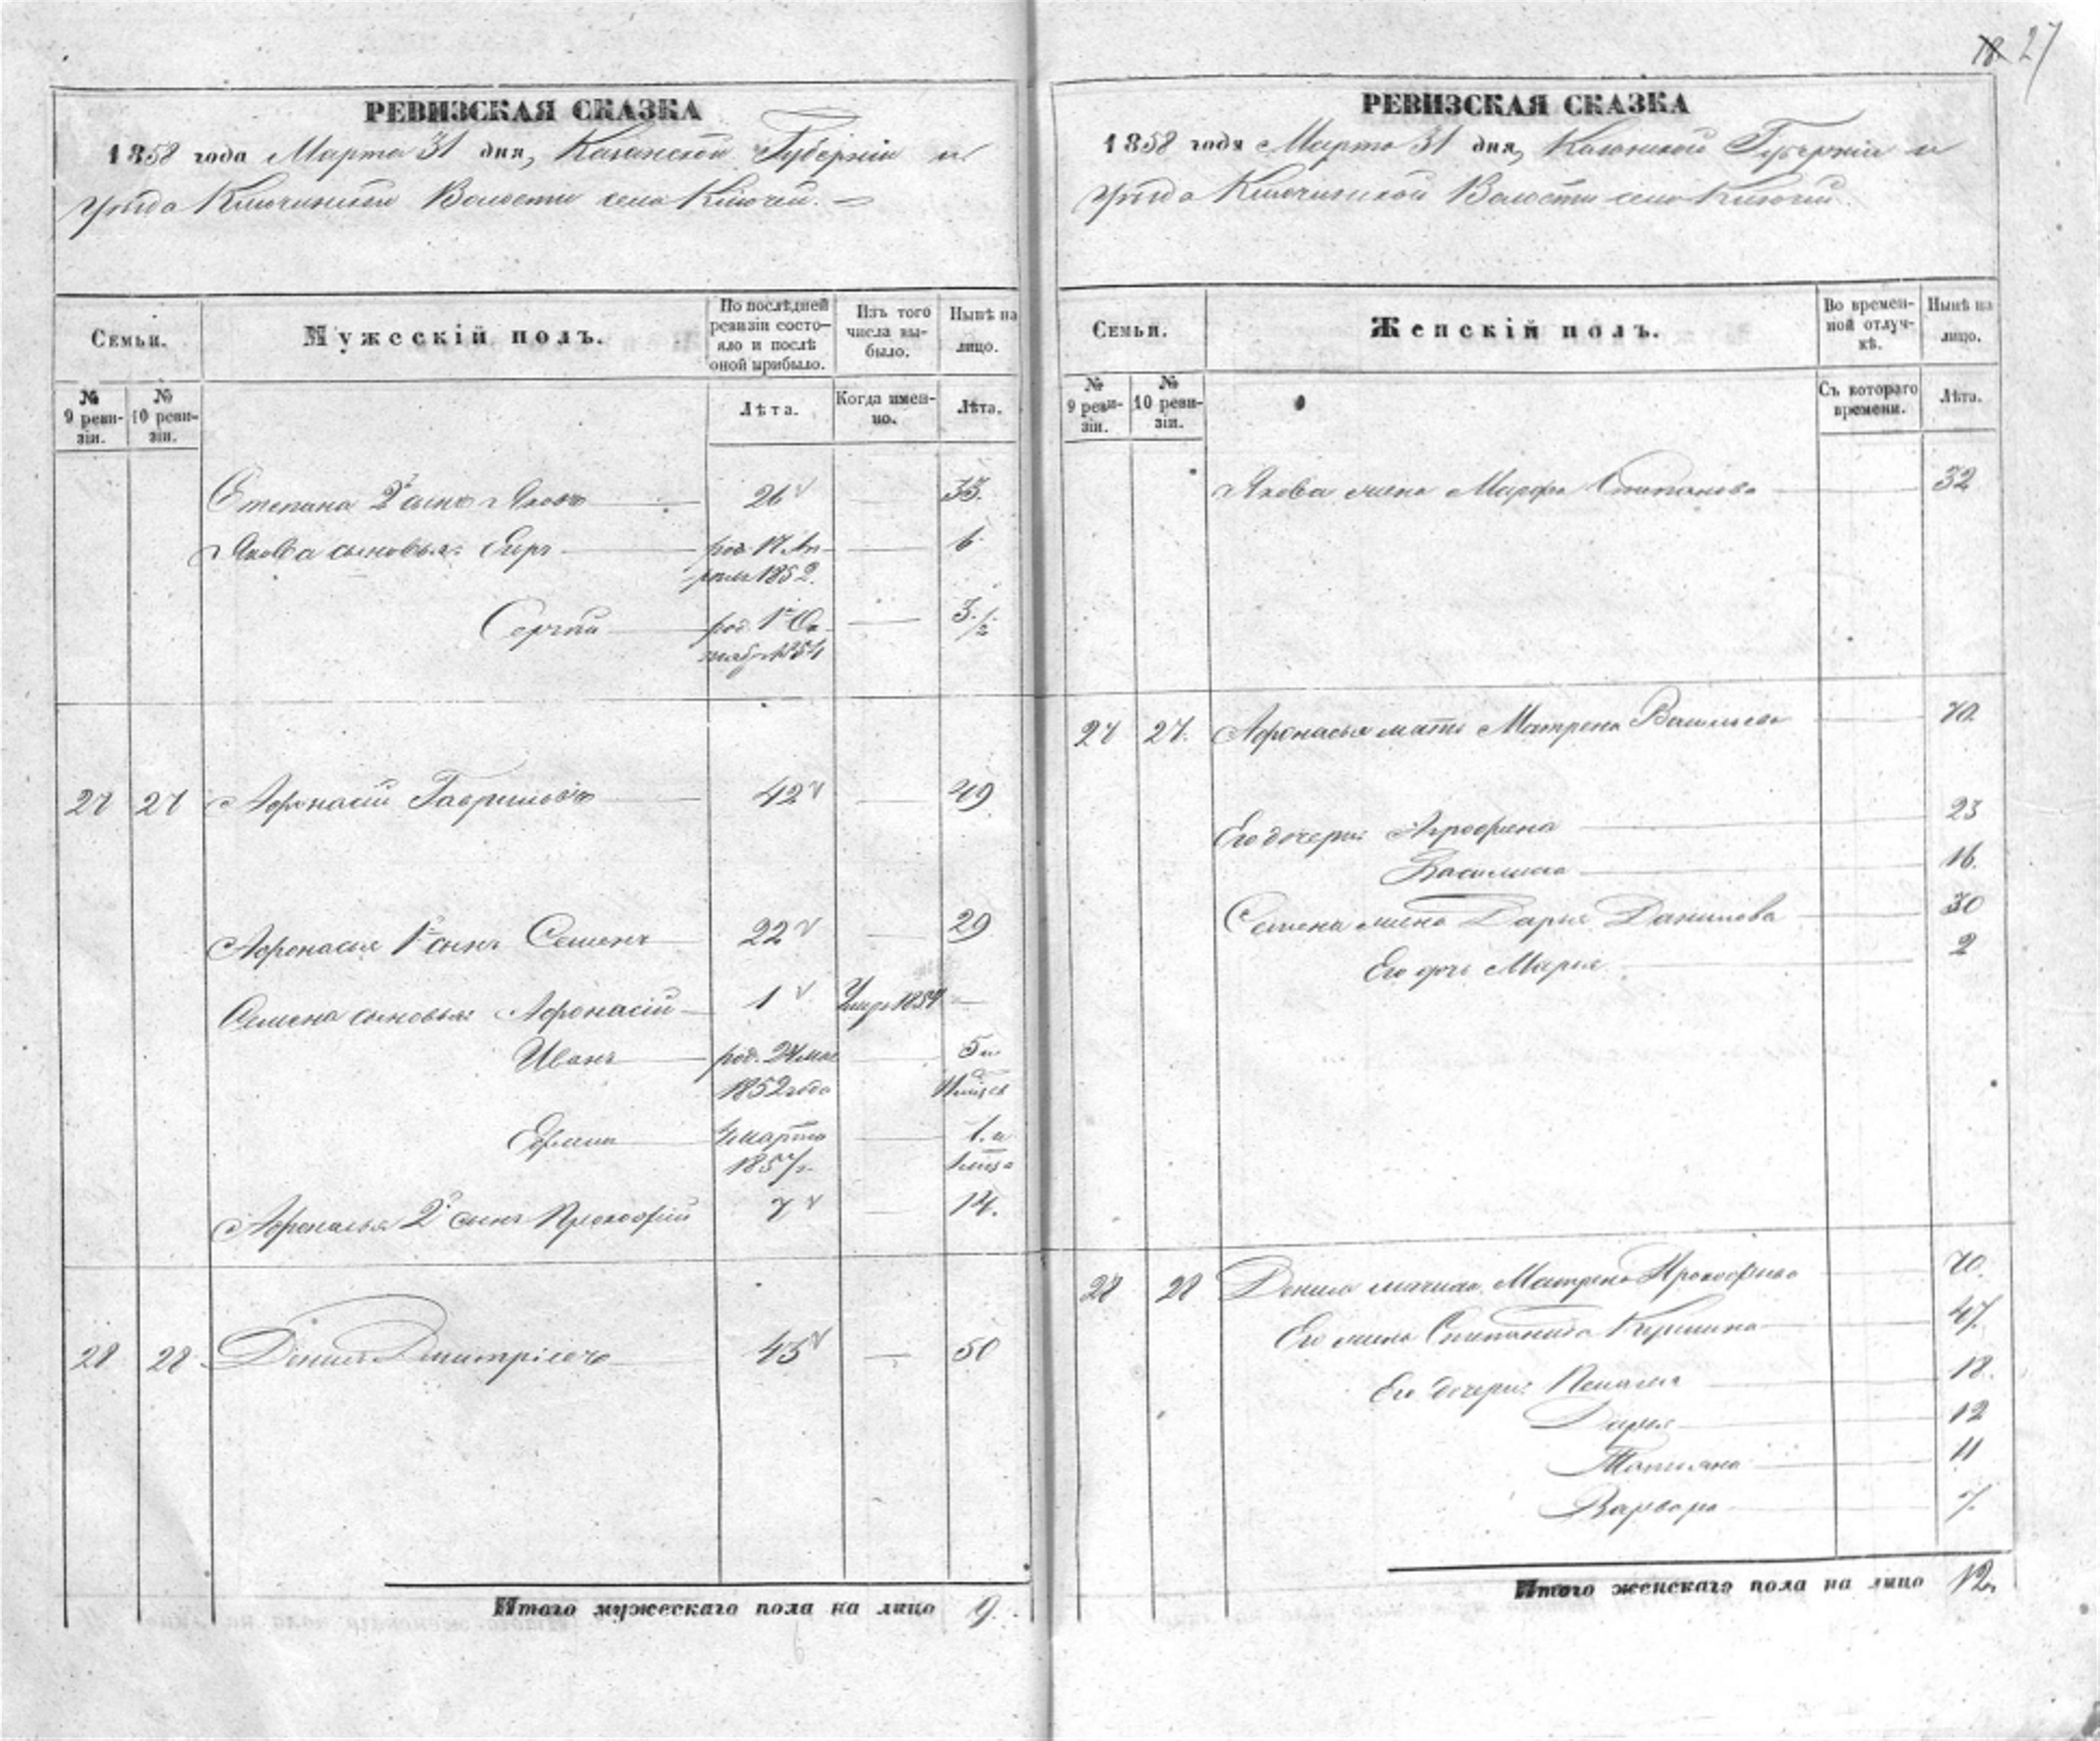 18. 27
РЕВИЗСКАЯ СКАЗКА
1858 года Марта 31 дня, Казанской Губерніи и
уѣзда Ключинской Волости села Ключей.
Семьи.
Мужескій полъ.
По послѣдней ревизіи состо-
яло и послѣ
оной прибыло.
Изъ того
числа вы-
было.
Нынѣ на
лицо.
№
9 реви-
зіи.
№
10 реви-
зіи.
Лѣта.
Когда имен-
но.
Лѣта.
Степана 2й сынъ Яковъ 26 33.
Якова сыновья: род. 17 Ап-
реля 1852. 6
Сергѣй род. 1го Ок-
тября 1854 3 1/2
27 27 Афонасій Гавриловъ 42 49
Афонасья 1й сынъ Семенъ 22 29
Семена сыновья: Афонасій 1 Умеръ 1854
Иванъ род. 24 мая 5 и
1852 года 10 мѣсяц
Ефимъ 4 марта 1. и
1857 г. 1 мѣсц
Афонасья 2й сынъ Прокофій 7 14.
28 28 Денисъ Дмитріевъ 43 50
Итого мужескаго пола на лицо 9.
РЕВИЗСКАЯ СКАЗКА
1858 года Марта 31 дня, Казанской Губерніи и
уѣзда Ключинской Волости села Ключей.
Семьи.
Женскій полъ.
Во времен-
ной отлуч-
кѣ.
Нынѣ на
лицо.
№
9 реви-
зіи.
№
10 реви-
зіи.
Съ котораго
времени.
Лѣта.
Якова жена Марфа Степанова 32
27 27. Афонасья мать Матрена Васильева 70.
Его дочери: Агрофена 23
Василиса 16.
Семена жена Дарья Данилова 30
Его дочь Марья 2
28 28 Дениса мачиха Матрена Прокофьева 70.
Его жена Степанида 47.
Его дочери: Пелагея 18.
Дарья 12
Татьяна 11
Варвара 7.
Итого женскаго пола на лицо 12.